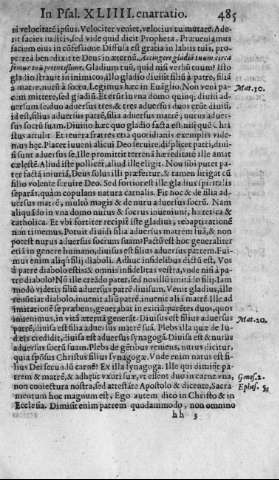 In Psal. XLIIII. enarratio. 485
ri velocitate ipsius. Velociter veniet, velociùs tu mutare. Ade-
rit facies meritis, sed vide quid dicit Propheta. Præcucurrimus
faciem eius in cōfessione. Diffusa est gratia in labiis tuis, prop-
terea benedixit te Deus in æternū, accingere gladiū tuum circa
femur tuū potentissime. Gladium tuū, quid nisi verbū tuum? Isto
gladio strauit inimicos, isto gladio diuisit filiū à patre, filiā
à matre, nurū à socru. Legimus hæc in Euangelio. Non veni pa- Mat.10.
cem mittere, sed gladium. Et erūt in vna domo quinq; diuisi ad-
uersum se: duo aduersus tres & tres aduersus duos erūt diuisi,
id est, filius aduersus patrē, filia aduersus matrē, nurus aduer-
sus socrū suam. Diuisio hæc quo gladio facta est nisi quē
Christus
men hęc. Placet iuueni alicui Deo seruire, displicet patri, diui-
si sunt aduersus se. Ille promittit terrenā hæreditatē, ille amat
cælestē. Aliud iste pollicetur, aliud ille elegit. Non sibi putet pa-
ter factā iniuriā, Deus solus illi præfertur, & tamen litigat cū
filio volente seruire Deo. Sed fortior est ille gladius spiritalis
separās, quàm copulans natura carnalis. Fit hoc & de filia ad-
uersus matrē, multò magis & de nuru aduersus socrū. Nam
aliquādo in vna domo nurus & socrus inueniuntur, hæretica &
catholica. Et vbi fortiter recipitur iste gladius, rebaptizationē
non timemus. Potuit diuidi filia aduersus matrem suā, & non
potest nurus aduersus socrum suam? Factū est hoc generaliter
etiā in genere humano, diuisus est filius aduersus patrem. Fui-
mus enim aliq̃ filij diaboli. Adhuc infidelibus dictū est, Vos
à patre diabolo estis: & omnis infidelitas vestra, vnde nisi à pa-
tre diabolo? Nō ille creādo pater, sed nos illū imitādo filij. Iam
modò videtis filiū aduersus patrem diuisum. Venit gladius, ille
renūciat diabolo, inuenit aliū patrē, inuenit aliā matrē. Ille ad
imitationē se præbens, generabat in exitiū
inuenimus, in vitā æternā generāt. Diuisus est filius aduersus
patrē, diuisa est filia aduersus matrē suā. Plebs illa quæ de Iu- Mat.10.
dæis credidit, diuisa est aduersus synagogā. Diuisa est & nurus
aduersus socrū suam. Plebs de gentibus veniens, nurus dicitur,
quia sponsus Christus filius synagogæ. Vnde enim natus est fi-
lius Dei secundū carnē? Ex illa synagoga. Ille qui dimisit pa-
trem & matrē, & adhæsit vxori suæ, vt essent duo in carne vna, Genes.2.
non coniectura nostra, sed attestāte Apostolo & dicente, Sacra- Ephes. 5.
mentum hoc magnum est, Ego autem dico in Christo & in
Ecclesia. Dimisit enim patrem quodammodo, non omnino
hh 3